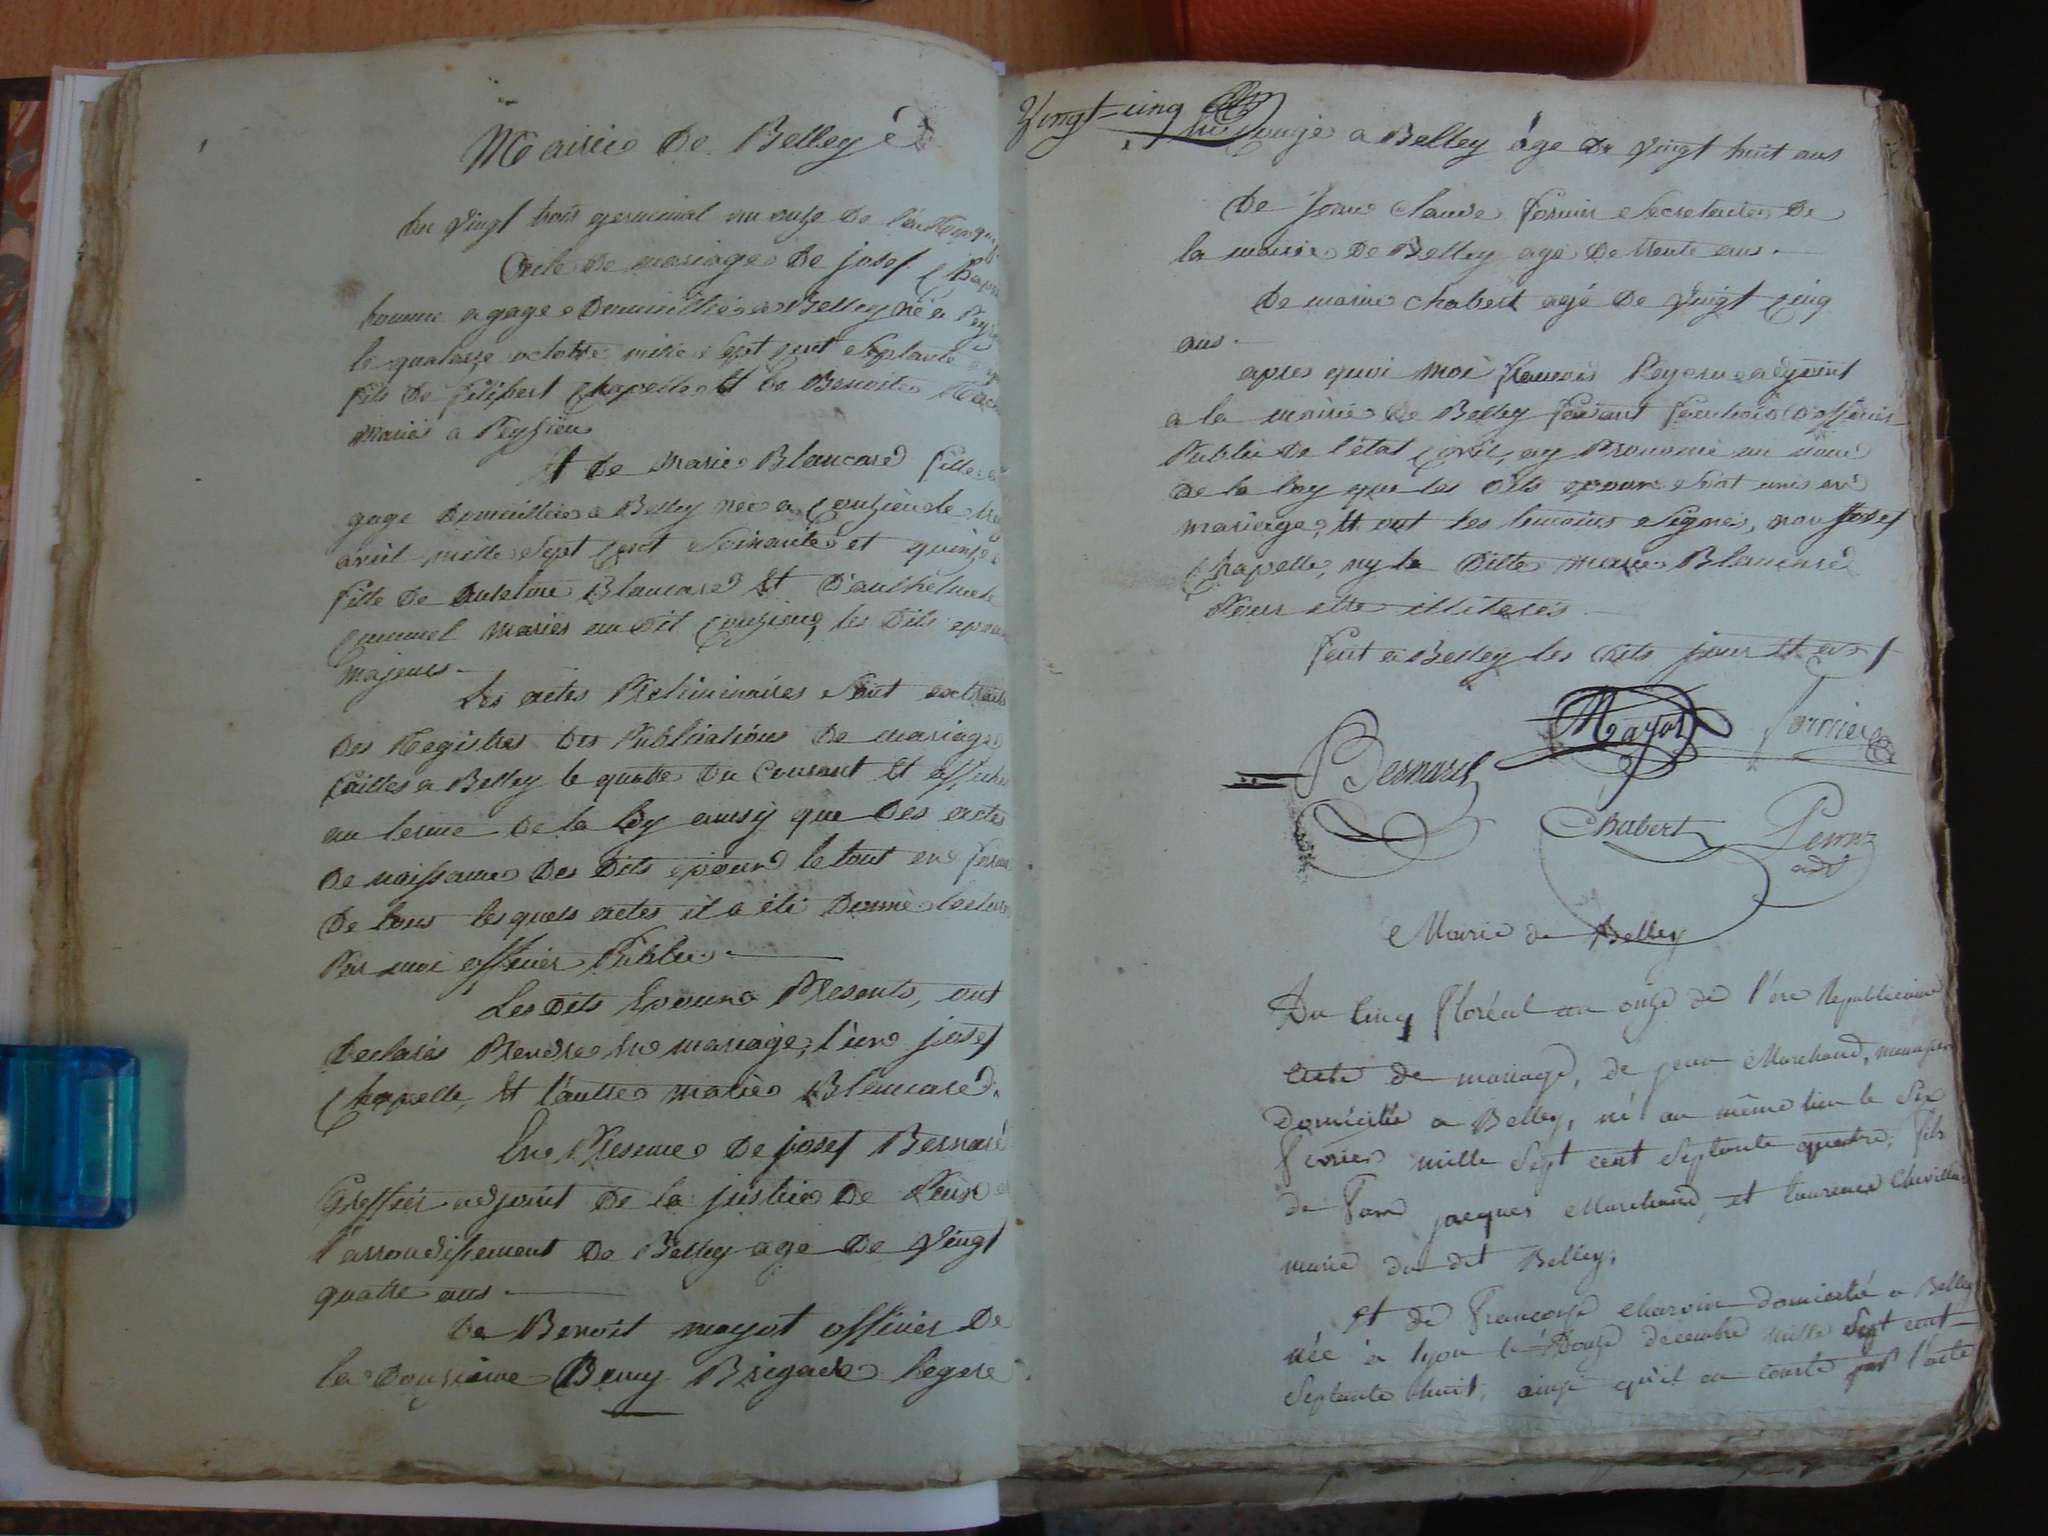 Mairie De Belley
Du vingt trois germinal an onze De l'ere
Acte De mariage De josef Chap
homme a gage Domicillié a Belley né a Pey
le quatorze octobre mille Sept cent Septante
fils De filibert Chapelle Et De Benoite
mariés a Peyzieu
Et De marie Blancard fille a
gage Domicilliée a Belley née a Conzieu le
avril mille Sept cent Soixante et quinze
fille De antelme Blancard Et D'anthelmete
mariés au Dit Conzieu, les Dits epoux
majeurs.
Les actes Preliminaires Sont extraits
Des Registres Des Publications De mariage
faittes a Belley le quatre Du Courant Et affiché
au terme De la loy ainsy que Des actes
De naissance Des Dits epoux le tout en forme
De tous les quels actes il a été Donné lecture
Par moi officier Public.
Les Dits Epoux Presents, ont
Declarés Prendre En mariage, l'un josef
Chapelle, Et l'autre marie Blancard.
En Presence De josef Bernard
Greffier adjoint De la justice De Paix
l'arrondissement De Belley agé De vingt
quatre ans.
De Benoit mayot officier De
la Demy Brigade legere
Vingt-cinq
En Congé a Belley agé De vingt huit ans
De Jean Claude fornier Secretaire De
la mairie De Belley agé De trente ans.
De marin Chabert agé De vingt Cinq
ans.
apres quoi moi françois adjoint
a la mairie De Belley faisant fonctions D'officier
Public De l'état Civil, ay Prononcé au nom
De la loy que les Dits epoux Sont unis en
mariage, Et ont les temoins Signés, non Josef
Chapelle, ny la Ditte marie Blancard
Pour etre illiterés.
fait a Belley les Dits jour Et an
Bernard
Mayot
fornier
Chabert
adt
Mairie de Belley
Du Cinq floréal an onze de l'ere Republicaine
acte de mariage, de jean Marchand,
Domicilié a Belley, né au même lieu le Six
fevrier mille Sept cent Septante quatre, fils
de jacques Marchand, et Laurence
marié du dit Belley,
Et de françoise Charvin domicilié a Belley
née a lyon le Douze decembre mille Sept cent
Septante huit, ainsi qu'il en conste par l'acte